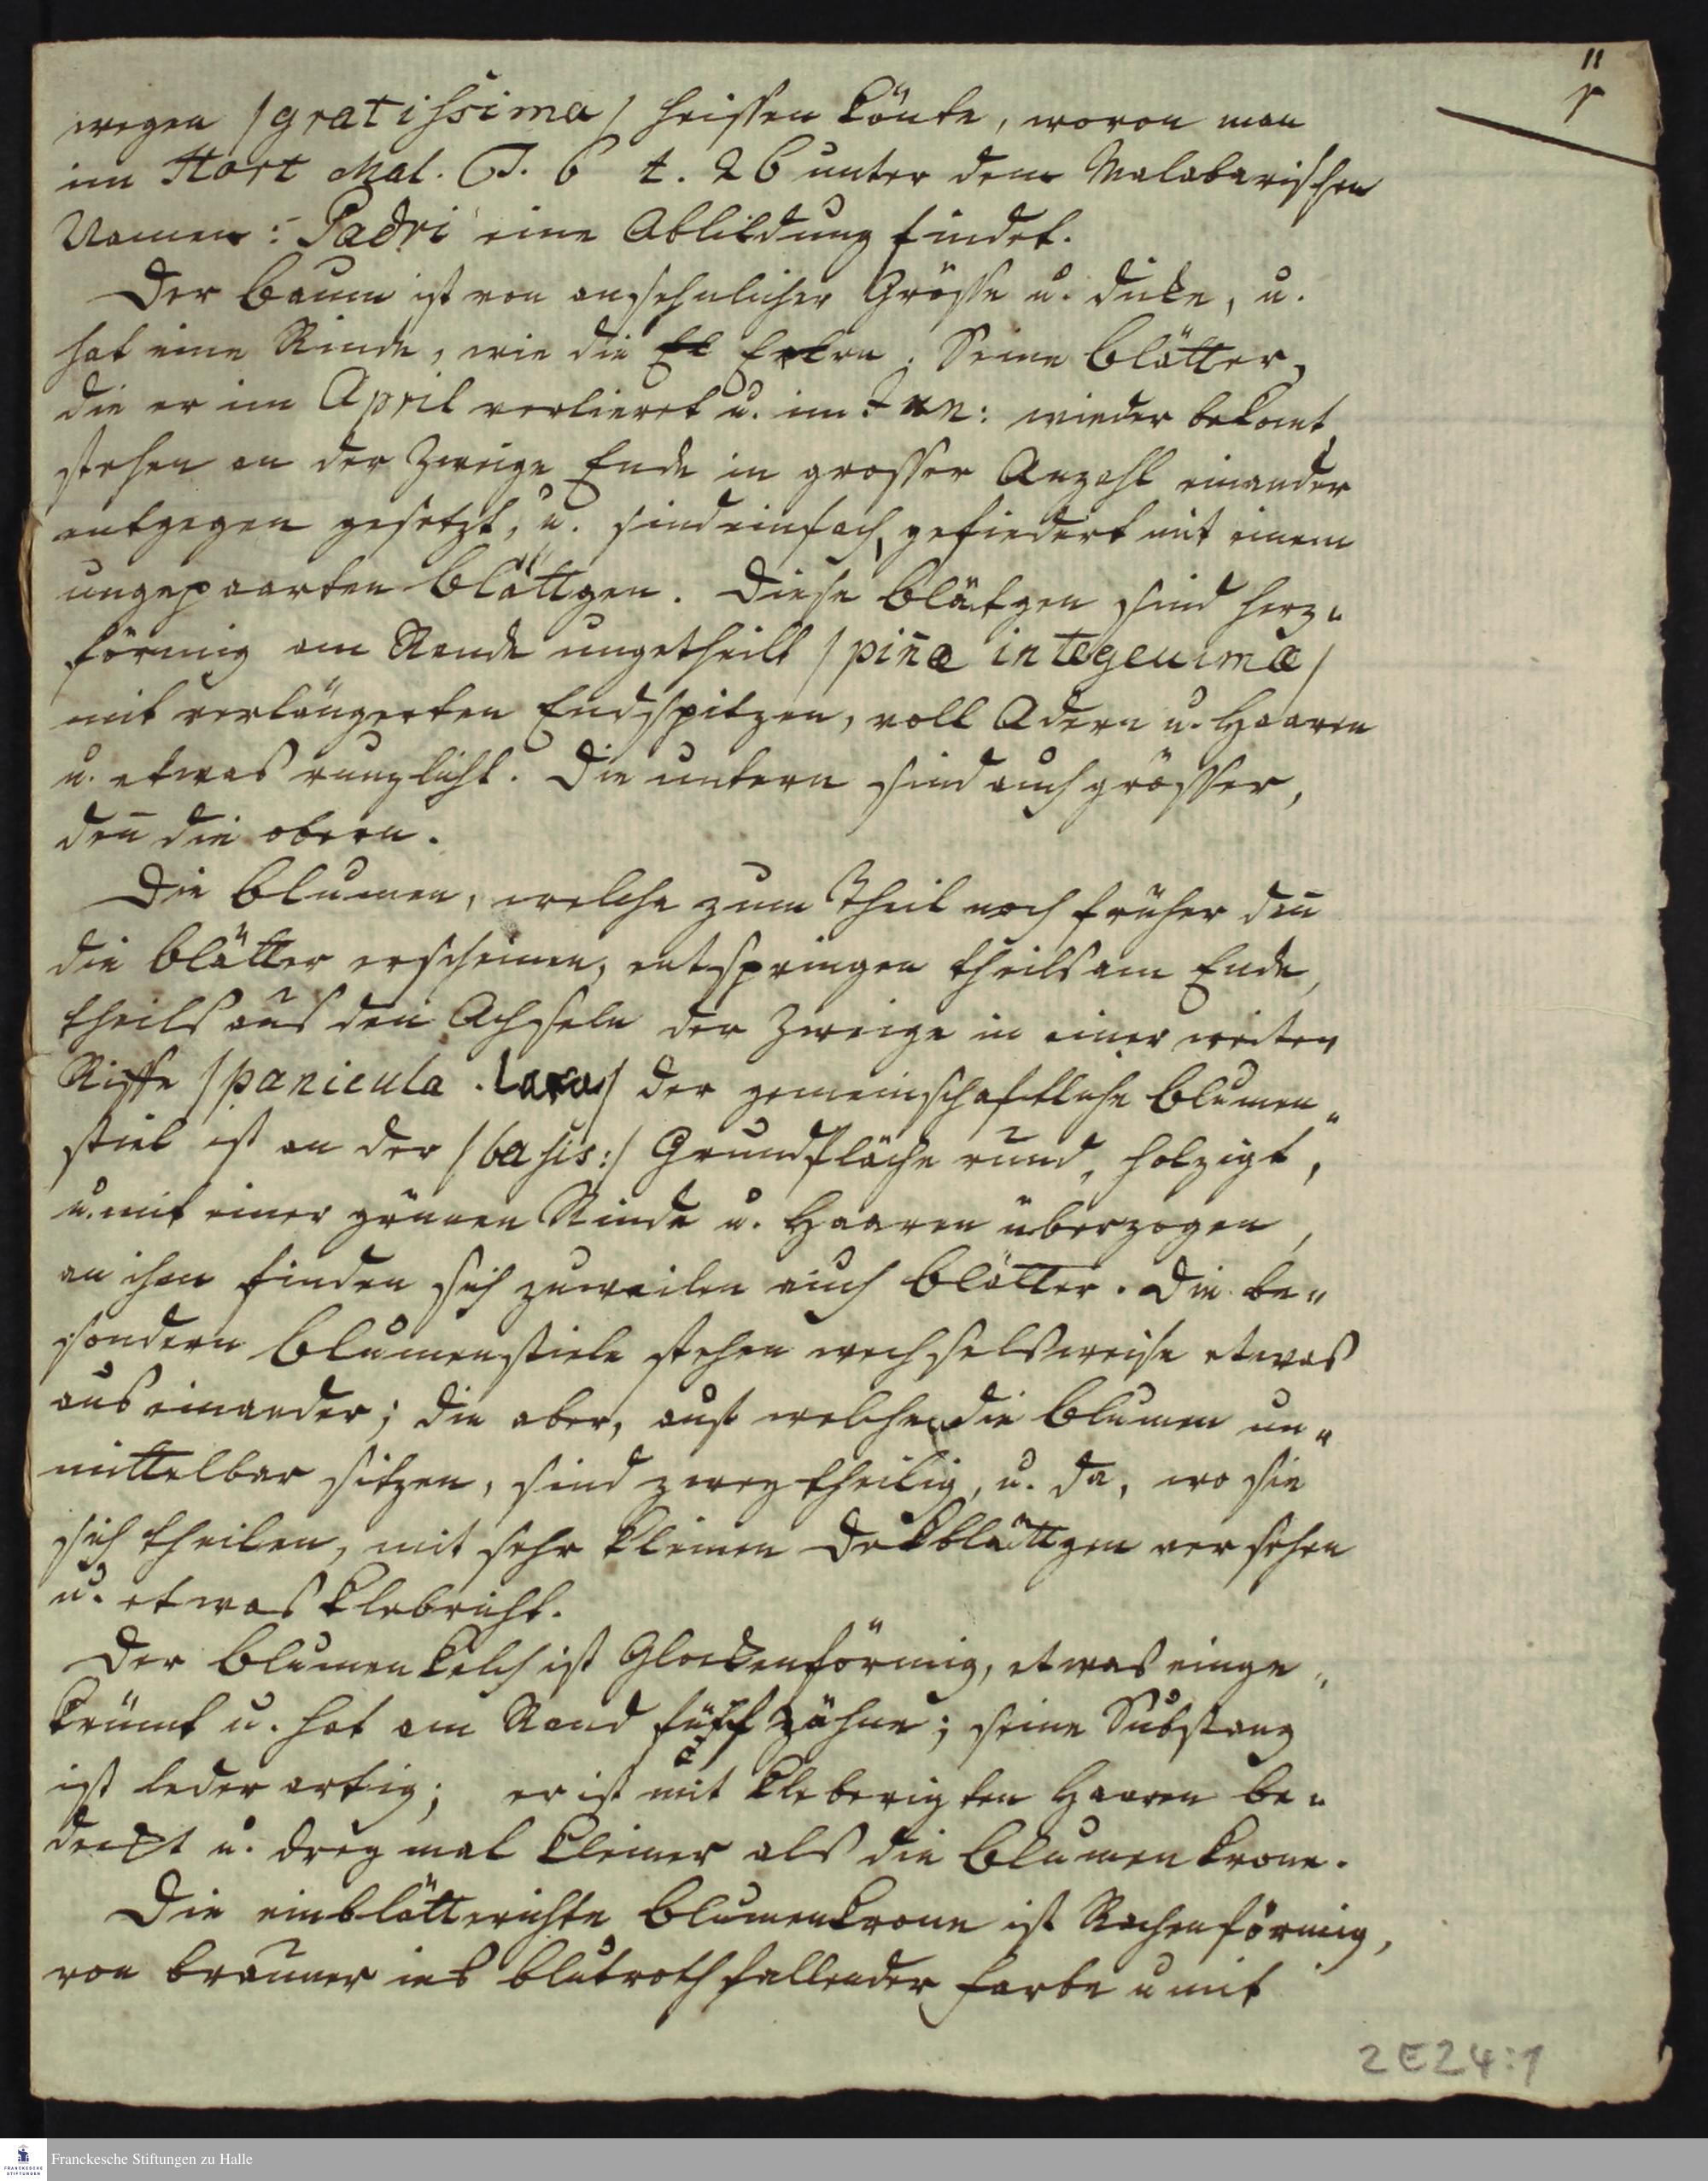 11
r
wegen /gratissima/ heissen könte, wovon man
im Hort Mal. T. 6 t. 26 unter dem Malabarischen
Namen: Padri eine Abbildung findet.
Der Baum ist von ansehnlicher Grösse u. dicke, u.
hat eine Rinde, wie die El Erlen. Seine Blätter,
die er im April verlieret u. im Jun: wieder bekomt,
stehen an der Zweige Ende in grosser Anzahl einander
entgegen gesetzt, u. sind einfach gefiedert mit einem
ungepaarten Blättgen. Diese Blätgen sind herz„
förmig am Rande ungetheilt /piñæ integerrimæ/
mit verlängerten Endspitzen, voll Adern u. Haaren
u. etwas runzlicht. Die untern sind auch grösser,
den̄ die obern.
Die Blumen, welche zum Theil noch früher den̄
die Blätter erscheinen, entspringen theils am Ende,
theils aus den Achseln der Zweige in einer weiten
Rispe /panicula laxa/ der gemeinschaftliche Blumen„
stiel ist an der /basis:/ Grundfläche rund, holzigt,
u. mit einer grünen Rinde u. Haaren überzogen,
an ihm finden sich zuweilen auch Blätter. Die be„
sondern Blumenstiele stehen wechselsweise etwas
aus einander; die aber, auf welchen die Blumen un„
mittelbar sitzen, sind zweytheilig, u. da, wo sie
sich theilen, mit sehr kleinen Dekblättgen versehen
u. etwas klebricht.
Der Blumenkelch ist Glockenförmig, etwas einge„
krümt u. hat am Rand fünf Zähne; seine Substanz
ist leder artig; er ist mit kleberigten Haaren be„
deckt u. dreymal kleiner als die Blumen krone.
Die einblätterichte Blumenkrone ist Rachenförmig,
von brauner ins blutroth fallender Farbe u mit
2 E 24:1
Franckesche Stiftungen zu Halle
FRANCKESCHE
STIFTUNGEN